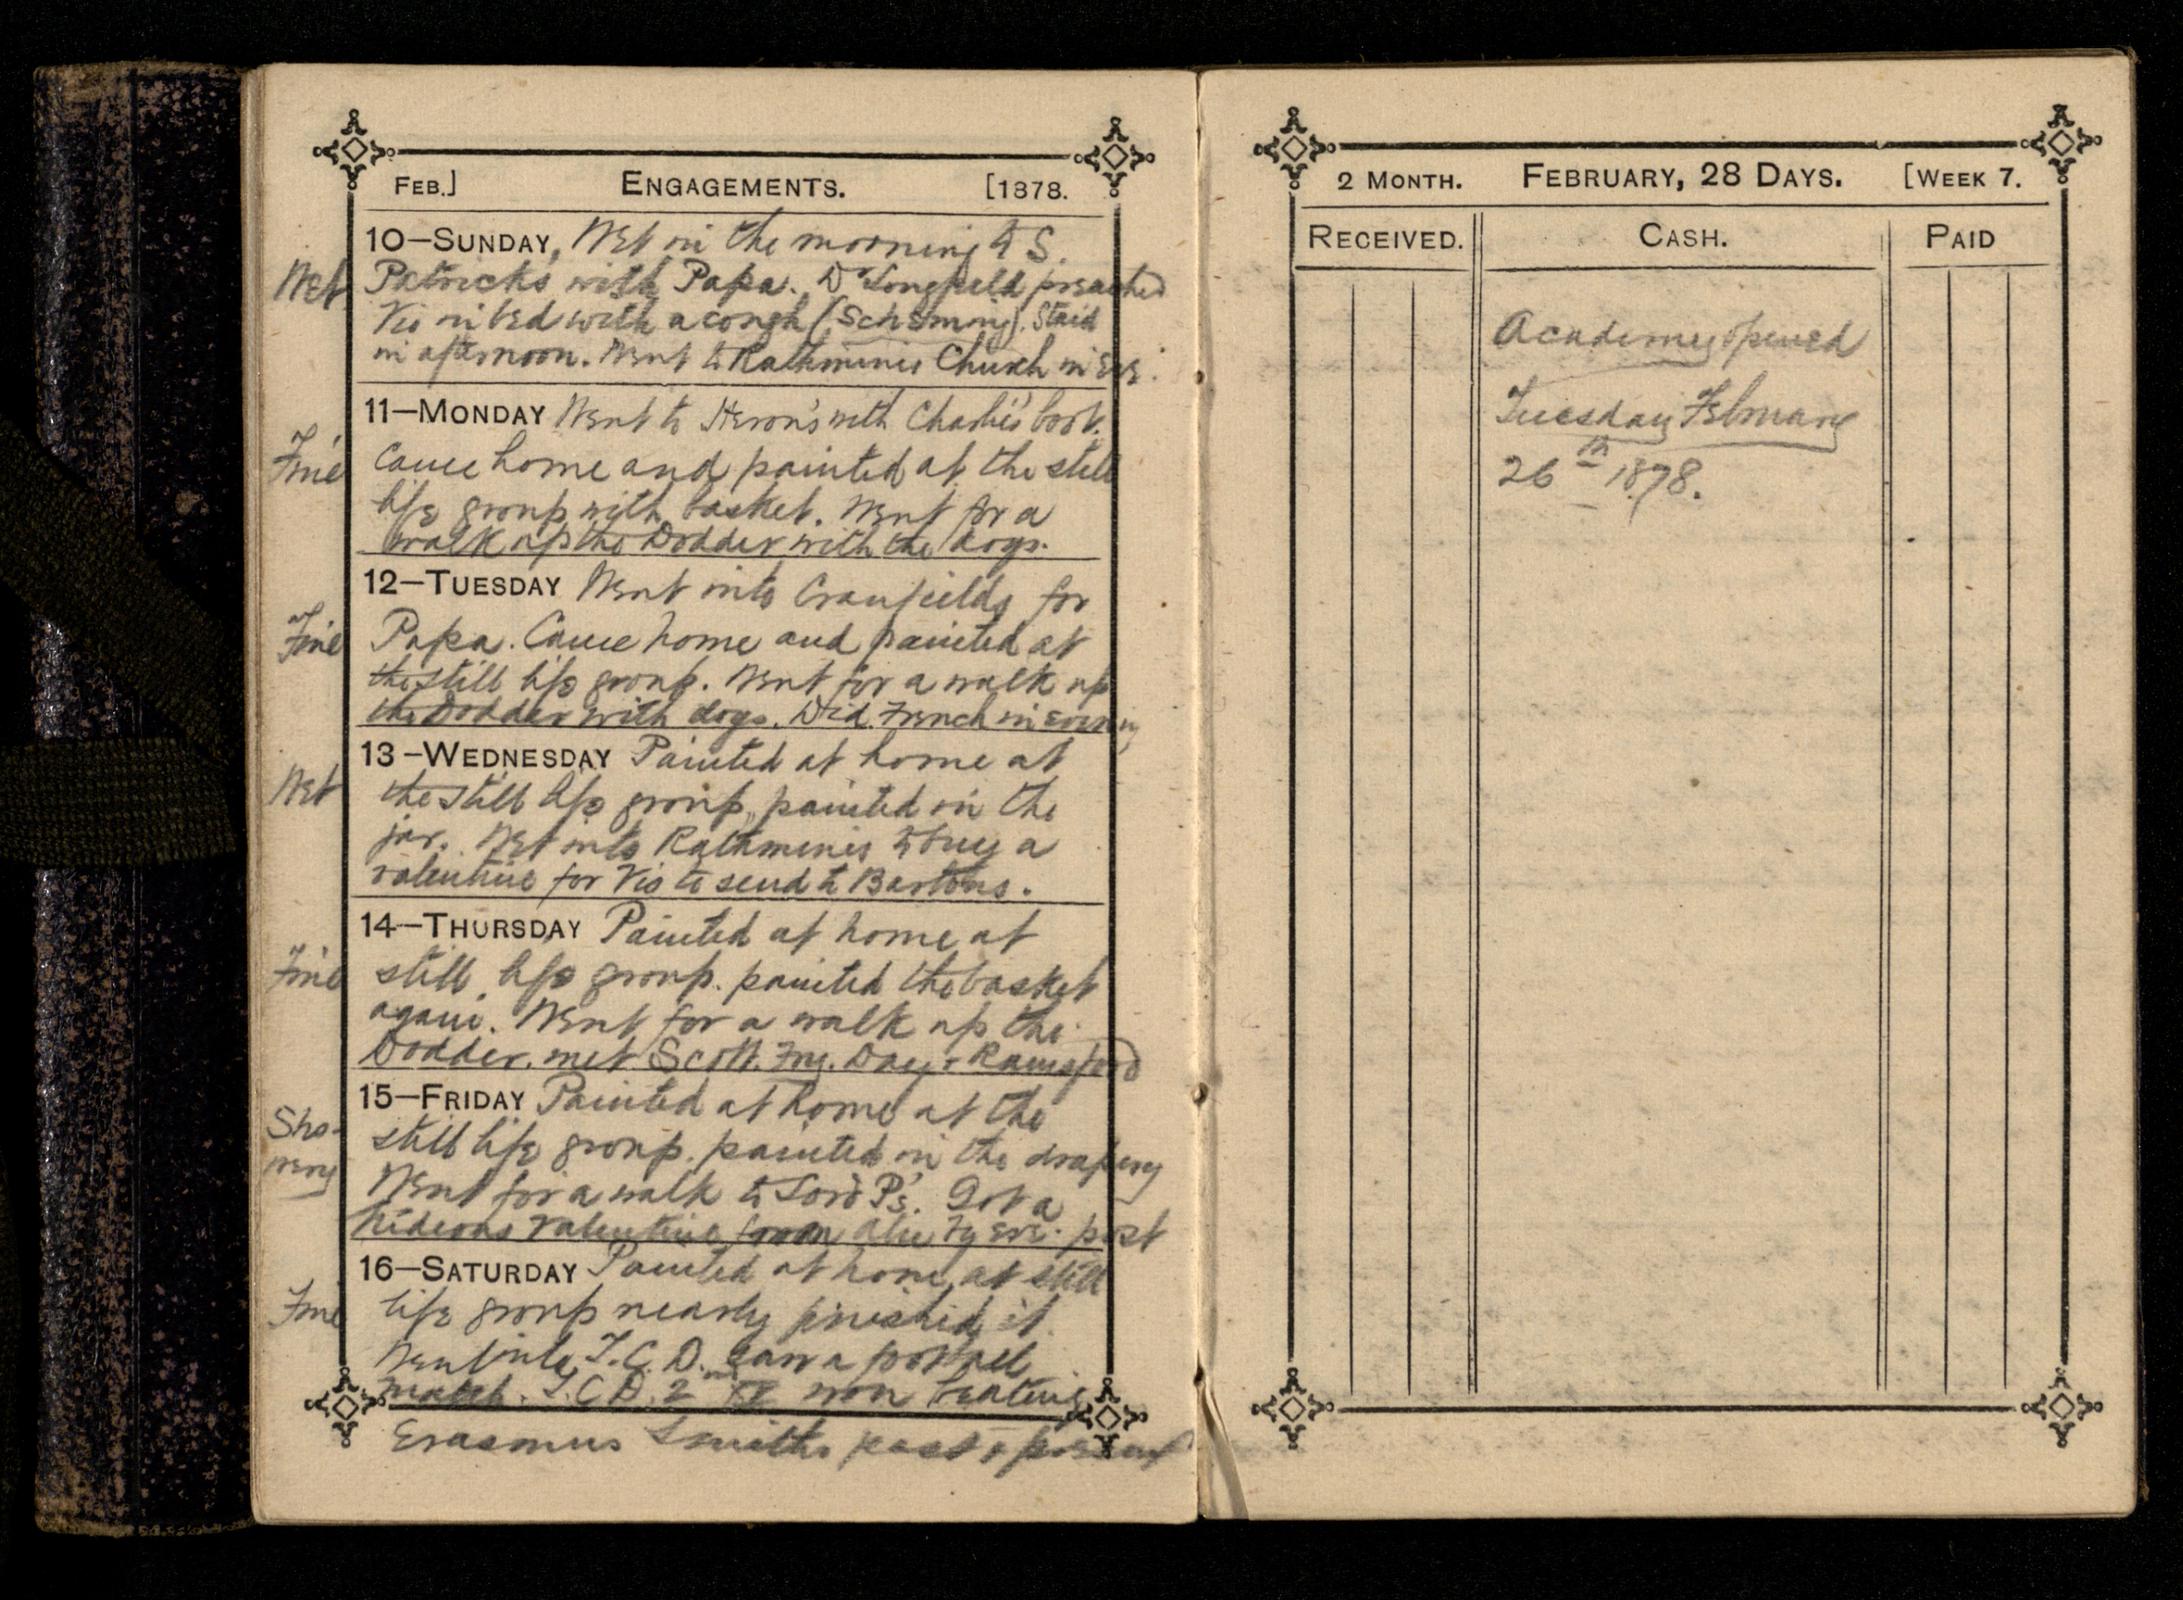 FEB.] ENGAGEMENTS. [1878.
10—SUNDAY, Wet in the morning to S.
Wet Patricks with Papa. Dr Longfield preached
Vio in bed with a cough (scheming). Staid
in afternoon. Went to Rathmines Church in Eve.
11—MONDAY Went to Heron's with Charlie's boot.
Fine Came home and painted at the still
life group with basket. Went for a
walk up the Dodder with the dogs.
12—TUESDAY Went into Cranfields for
Fine Papa. Came home and painted at
the still life group. Went for a walk up
the Dodder with dogs. Did French in evening
13—WEDNESDAY Painted at home at
Wet the still life group, painted in the
jar. Wet into Rathmines to buy a
valentine for Vio to send to Bartons.
14—THURSDAY Painted at home at
Fine still life group. painted the basket
again. Went for a walk up the
Dodder. met Scott. Day & Rainsford
15—FRIDAY Painted at home at the
Sho- still life group. painted in the drapery
wery Went for a walk to Lord P's. Got a
hideous valentine from by Eve. post
16—SATURDAY Painted at home at still
Fine life group nearly finished it
Went into T.C.D. saw a football
match. T.C.D. 2nd XV won beating
Erasmus Smiths past & present
2 MONTH. FEBRUARY, 28 DAYS. [WEEK 7.
RECEIVED. CASH. PAID
Academy opened
Tuesday February
26th 1878.